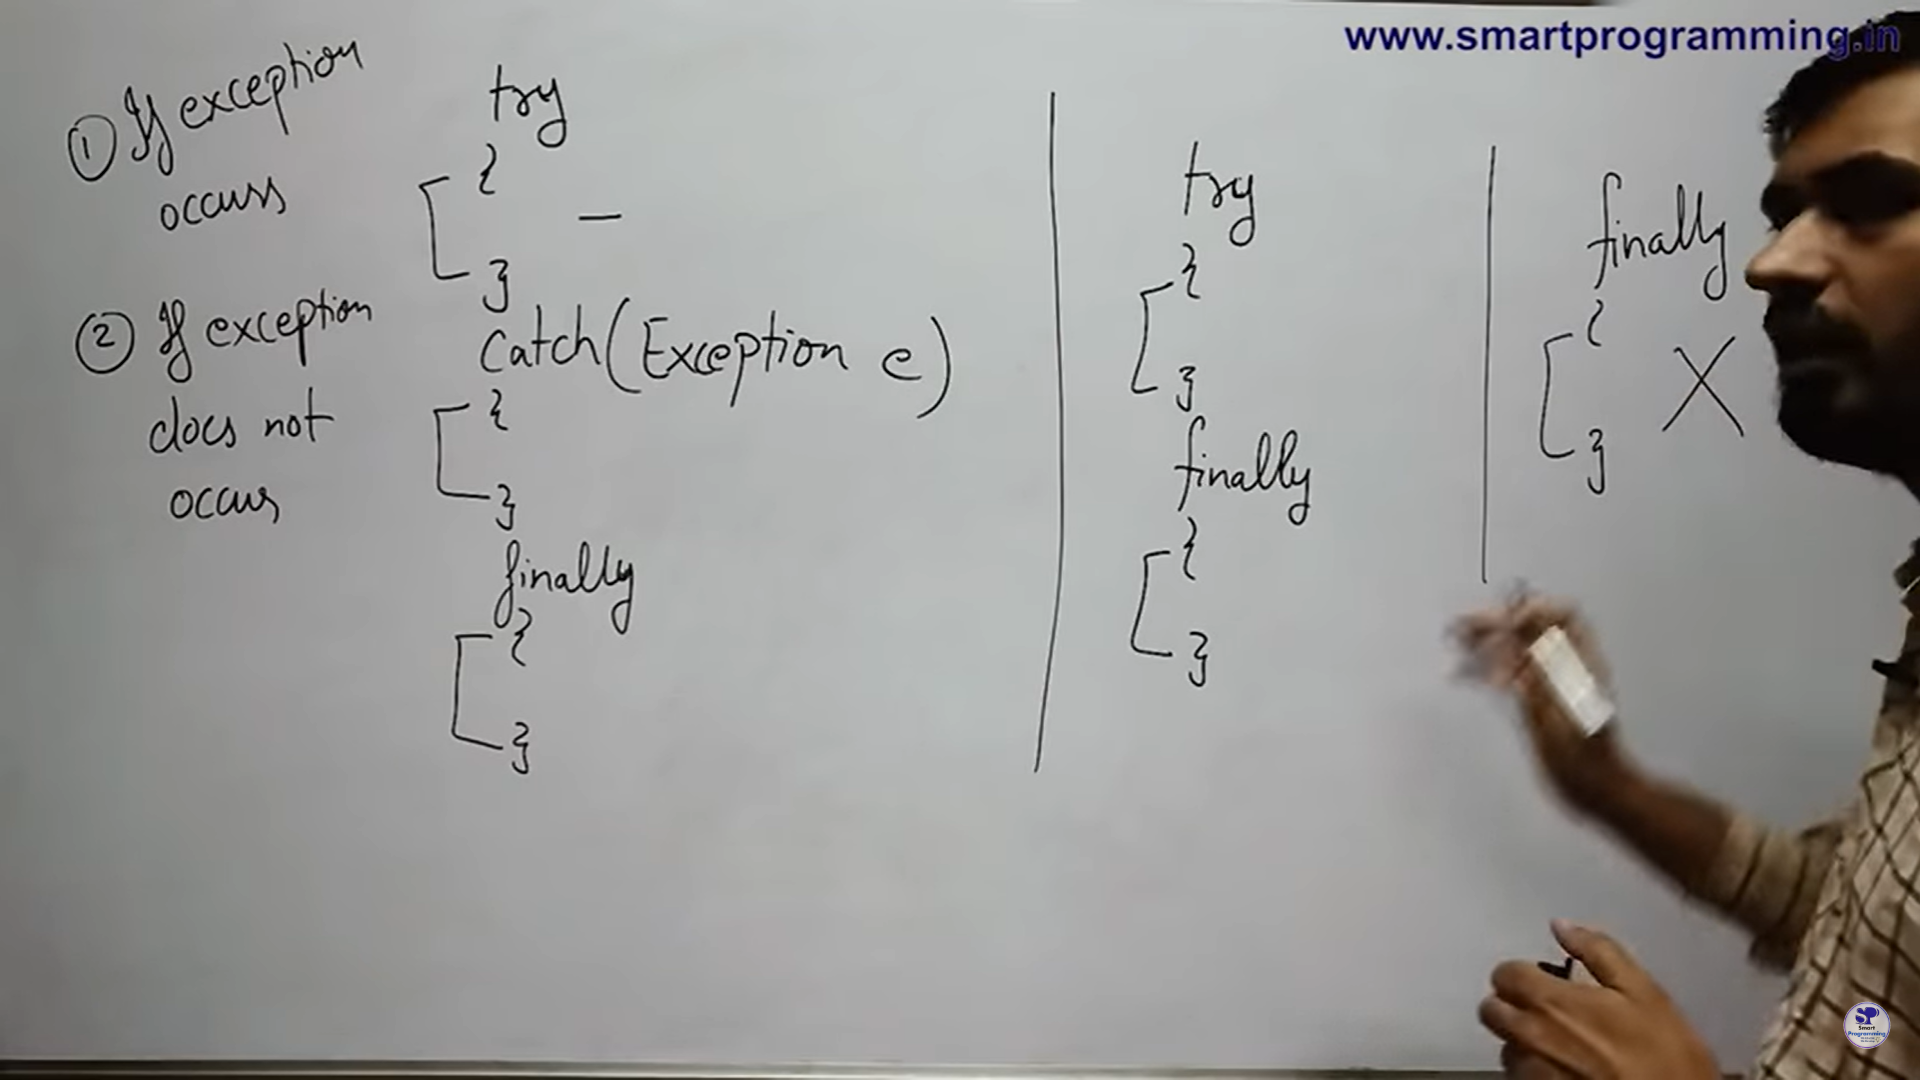 www.smartprogramming.in
① If exception
occurs
② If exception
does not
occur
try
{
}
catch(Exception e)
{
}
finally
{
}
try
{
}
finally
{
}
finally
{
}
X
SP
Smart
Programming